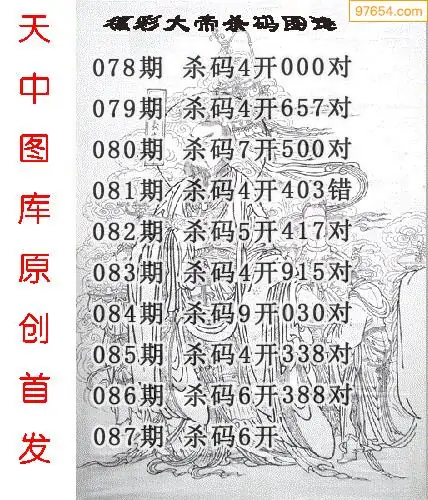 97654.com
福彩大帝杀码图迷
078期 杀码4开000对
079期 杀码4开657对
080期 杀码7开500对
081期 杀码4开403错
082期 杀码5开417对
083期 杀码4开915对
084期 杀码9开030对
085期 杀码4开338对
086期 杀码6开388对
087期 杀码6开
天中图库原创首发